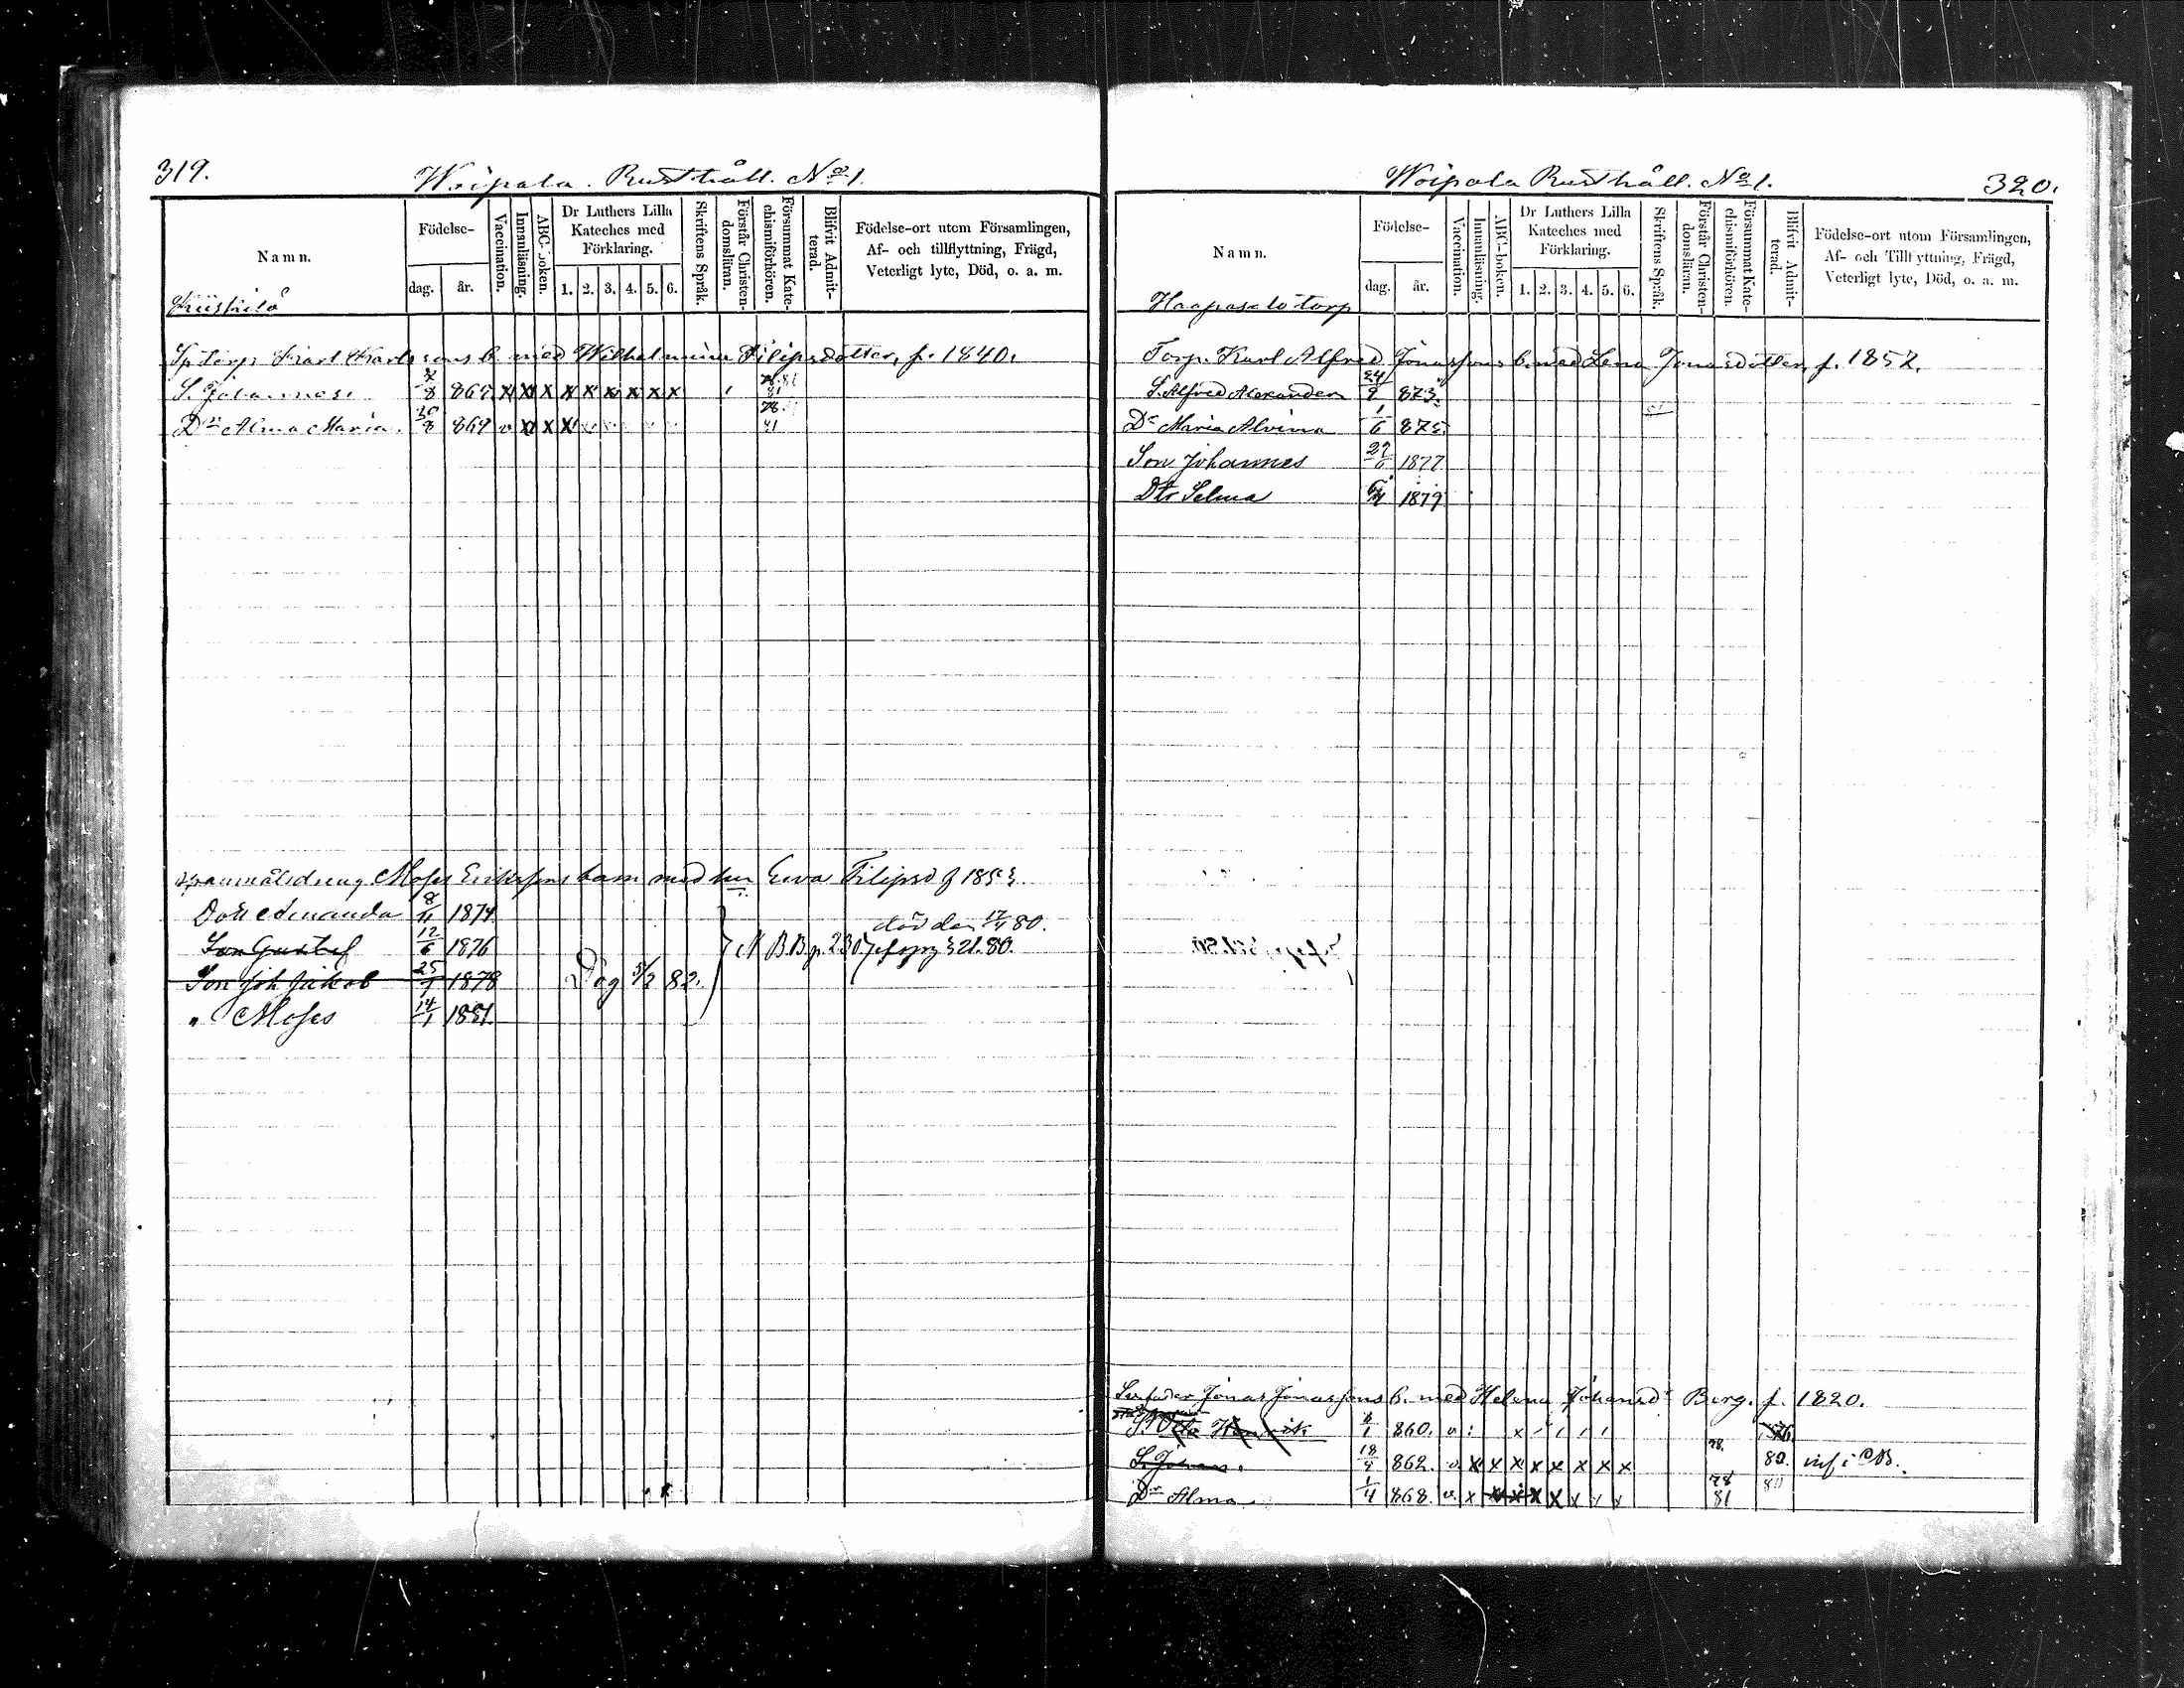 319.
Woipala. Rusthåll. No 1.
Namn.
Födelse-
dag.
år.
Vaccination.
Innanläsning.
ABC-boken.
Dr Luthers Lilla
Kateches med
Förklaring.
1. 2. 3. 4. 5. 6.
Skriftens Språk.
Förstår Christen-
domsläran.
Försummat Kate-
chismiförhören.
Blifvit Admit-
terad.
Födelse-ort utom Församlingen,
Af- och tillflyttning, Frägd,
Veterligt lyte, Död, o. a. m.
Sptorp Karl Karlssons b. med Wilhelmina Filipsdotter, f. 1840.
S. Johannes. 8 864. x x x x x x x x x 81
Dr Alma Maria. 30/8 869 v x x x 78. 81
Moses Erikssons barn med hu Eva Filipsd f 1853.
Dotr Amanda 8/11 1874
död den 17/4 80.
Son Gustaf 12/6 1876 N B.B.p. 230
Son Joh Jakob 25/7 1878 Dög 5/2 82.
" Moses 14/1 1881.
Woipala Rusthåll. No 1.
320.
Namn.
Födelse-
dag.
år.
Vaccination.
Innanläsning.
ABC-boken.
Dr Luthers Lilla
Kateches med
Förklaring.
1. 2. 3. 4. 5. 6.
Skriftens Språk.
Förstår Christen-
domsläran.
Försummat Kate-
chismiförhören.
Blifvit Admit-
terad.
Födelse-ort utom Församlingen,
Af- och Tillflyttning, Frägd,
Veterligt lyte, Död, o. a. m.
Haapasalo torp
Torp. Karl Alfred Jonassons b. med Lena Jonasdotter, f. 1852.
S. Alfred Alexander 24/2 873.
Dr Maria Alvina 1/6 875.
Son Johannes 29/6 1877
Dtr Selma 1879
Jonas Jonassons b. med Helena Johansdr Berg. f. 1820.
S. Otto Henrik 6/1 860. v
S. Johans. 18/4 862. v x x x x x x x x 78. 80. inf i CB.
Dr Alma. 1/4 868. v. x x x x x x x x 78 81 80